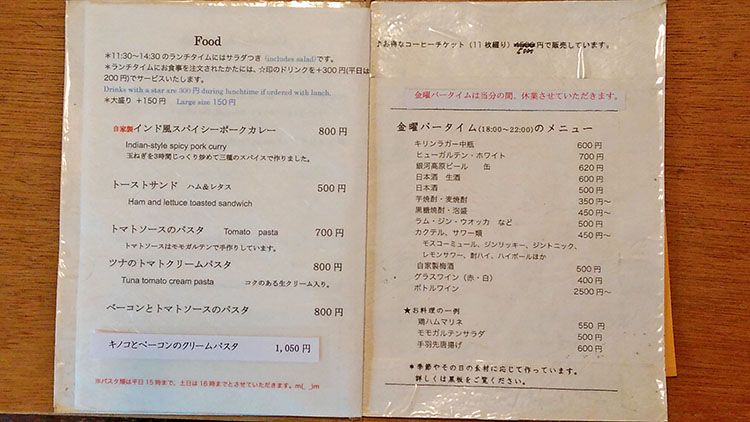 Food
*11:30~14:30のランチタイムにはサラダつき (includes salad)です。
*ランチタイムにお食事を注文されたかたには、☆印のドリンクを+300円(平日は
200円)でサービスいたします。
Drinks with a star are 300円 during lunchtime if ordered with lunch.
*大盛り +150円 Large size 150円
自家製インド風スパイシーポークカレー 800円
Indian-style spicy pork curry
玉ねぎを3時間じっくり炒めて三種のスパイスで作りました。
トーストサンド ハム&レタス 500円
Ham and lettuce toasted sandwich
トマトソースのパスタ Tomato pasta 700円
トマトソースはモモガルテンで手作りしています。
ツナのトマトクリームパスタ 800円
Tuna tomato cream pasta コクのある生クリーム入り。
ベーコンとトマトソースのパスタ 800円
キノコとベーコンのクリームパスタ 1,050円
※パスタ類は平日15時まで、土日は16時までとさせていただきます。m(_ _)m
♪お得なコーヒーチケット(11枚綴り) 円で販売しています。
金曜バータイムは当分の間、休業させていただきます。
金曜バータイム(18:00~22:00)のメニュー
キリンラガー中瓶 600円
ヒューガルテン・ホワイト 700円
銀河高原ビール 缶 620円
日本酒 生酒 600円
日本酒 500円
芋焼酎・麦焼酎 350円~
黒糖焼酎・泡盛 450円~
ラム・ジン・ウオッカ など 500円
カクテル、サワー類 450円~
モスコーミュール、ジンリッキー、ジントニック、
レモンサワー、酎ハイ、ハイボールほか
自家製梅酒 500円
グラスワイン(赤・白) 400円
ボトルワイン 2500円~
★お料理の一例
鶏ハムマリネ 550円
モモガルテンサラダ 500円
手羽先唐揚げ 600円
*季節やその日の食材に応じて作っています。
詳しくは黒板をご覧ください。